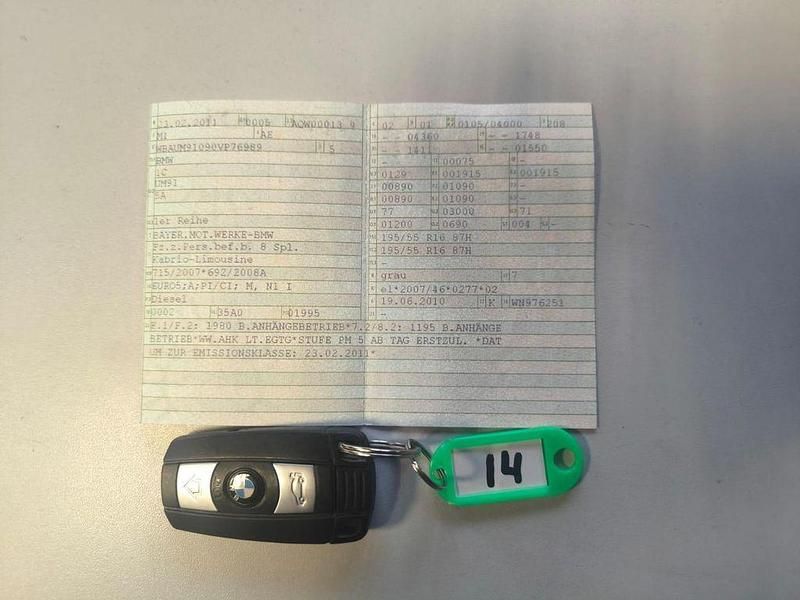 23.02.2011 0005 AQW00013 9
M1 AE
WBAUM91090VP76989 5
BMW
1C
UM91
5A
1er Reihe
BAYER.MOT.WERKE-BMW
Fz.z.Pers.bef.b. 8 Spl.
Kabrio-Limousine
715/2007*692/2008A
EURO5;A;PI/CI; M, N1 I
Diesel
0002 35A0 01995
02 01 0105/04000 208
- - 04360 - - 1748
- - 1411 - - 01550
- 00075 -
0129 001915 001915
00890 01090 -
00890 01090 -
77 03000 71
01200 0690 004 -
195/55 R16 87H
195/55 R16 87H
-
grau 7
e1*2007/46*0277*02
19.06.2010 K WN976253
-
F.1/F.2: 1980 B.ANHÄNGEBETRIEB*7.2/8.2: 1195 B.ANHÄNGE
BETRIEB*WW.AHK LT.EGTG*STUFE PM 5 AB TAG ERSTZUL. *DAT
UM ZUR EMISSIONSKLASSE: 23.02.2011*
14